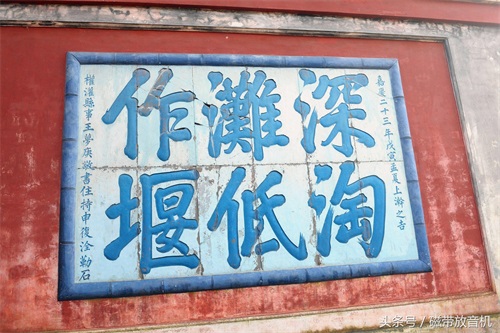 嘉慶二十三年戊寅孟夏上澣之吉
深淘
灘低
作堰
權灌縣事王夢庚敬書住持申復淦勒石
头条号 / 磁带放音机